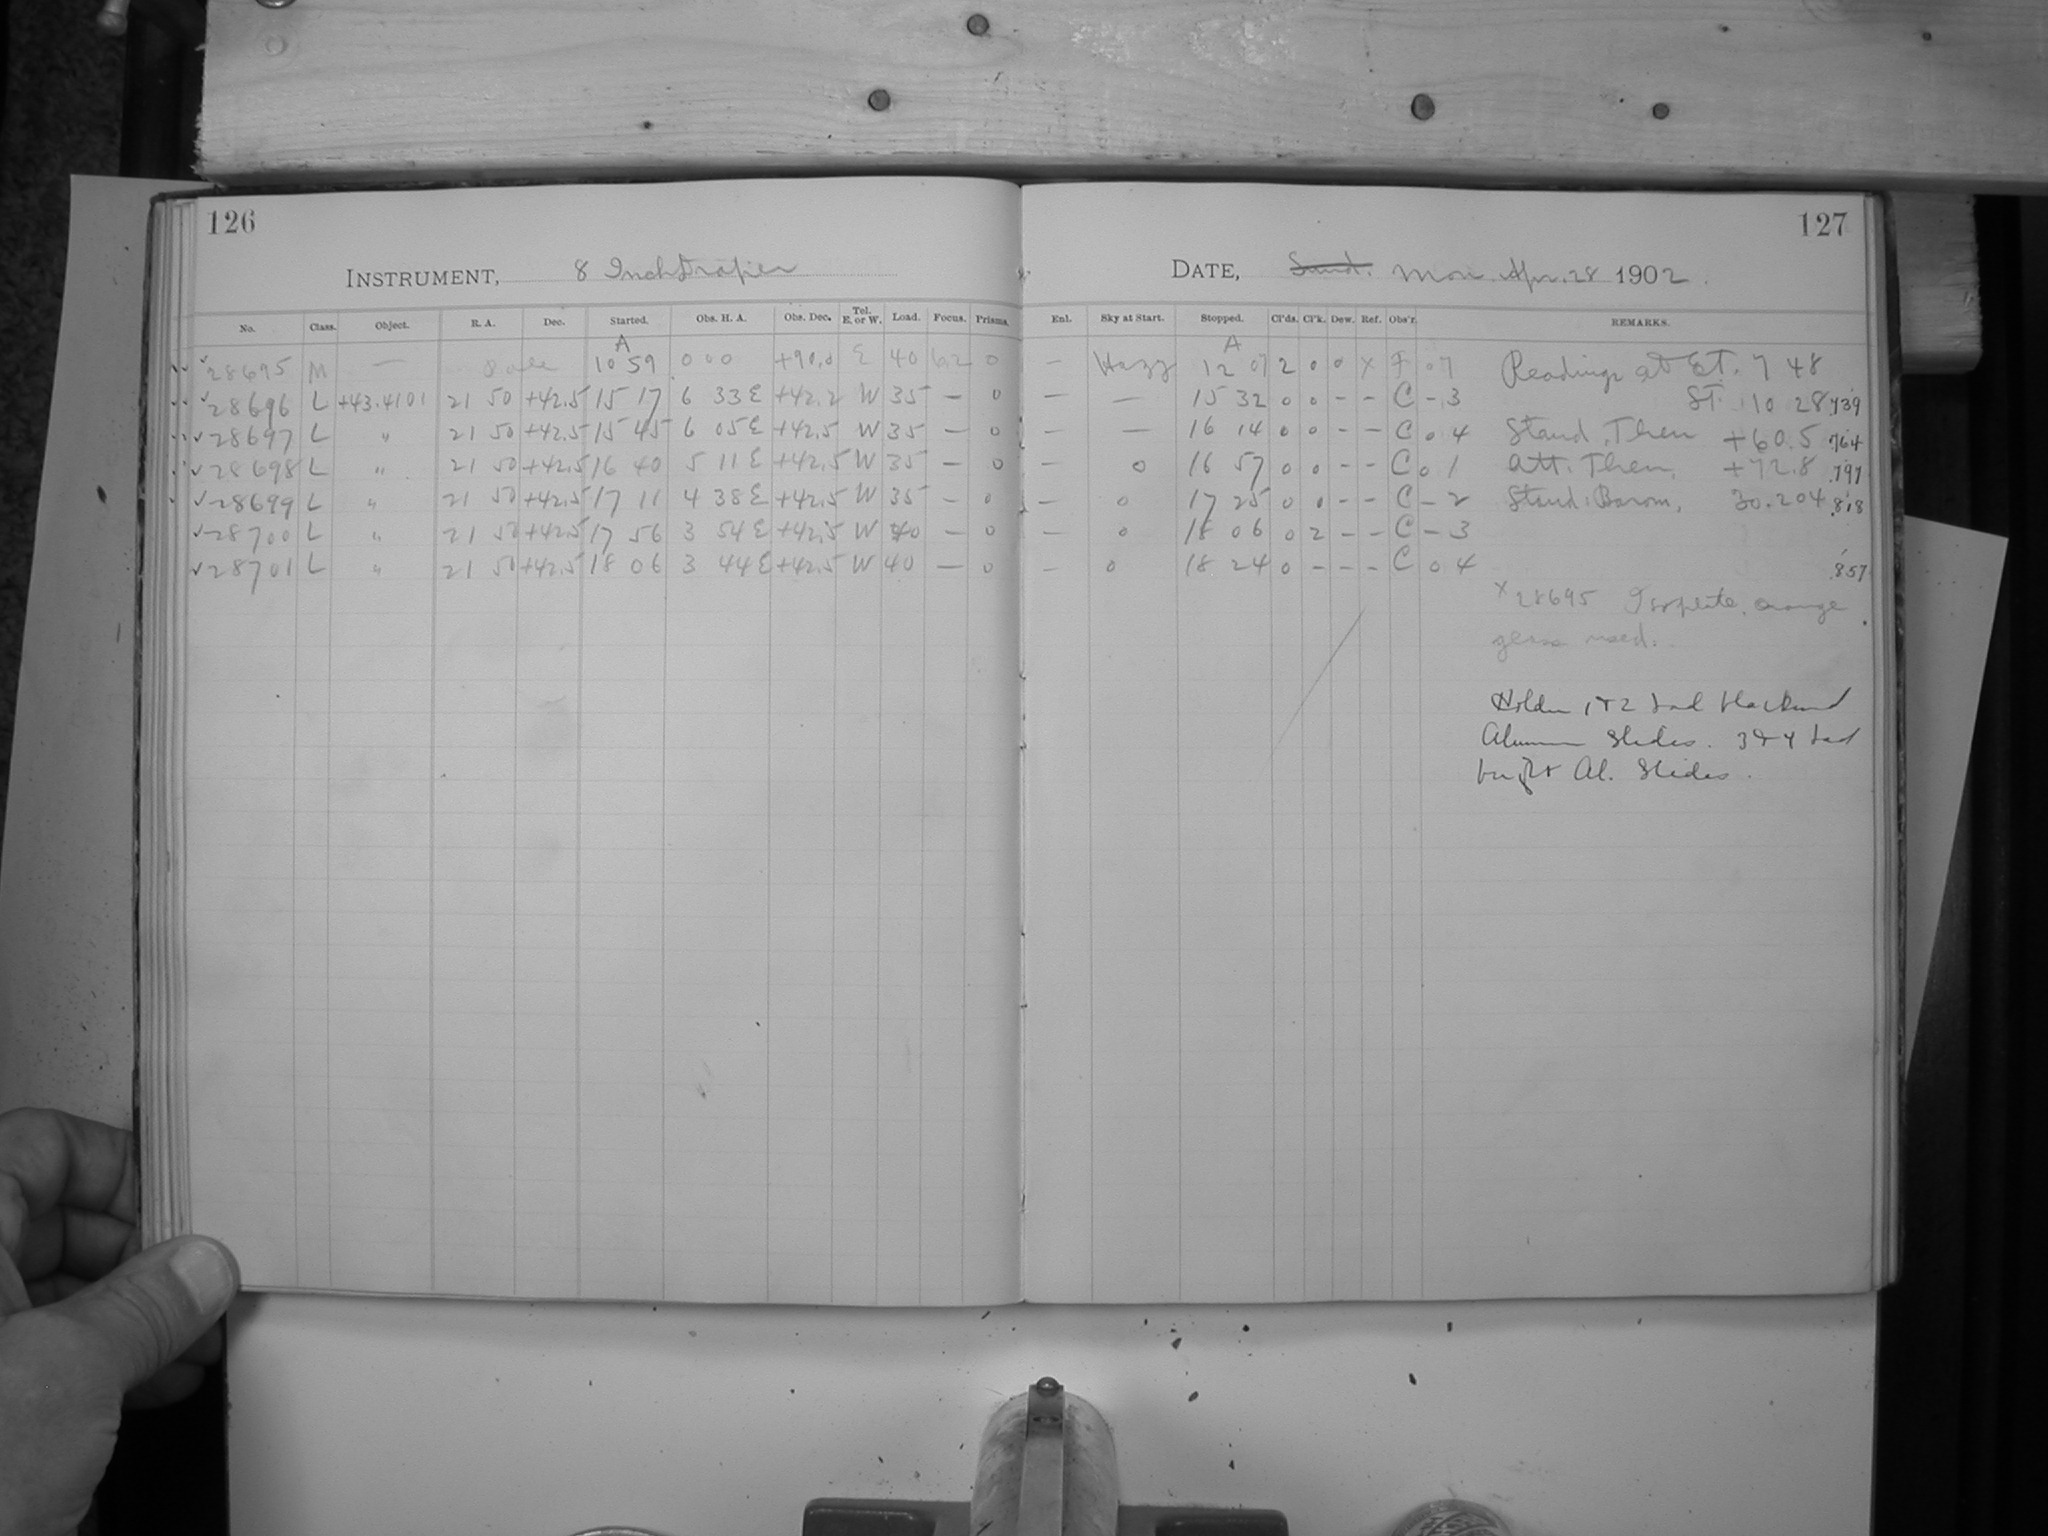 126
127
INSTRUMENT, 8 Inch Draper
DATE, Sund. Mon. Apr. 28 1902.
No. Class. Object. R. A. Dec. Started. Obs. H. A. Obs. Dec. Tel. E. or W. Load. Focus. Prisms. Enl. Sky at Start. Stopped. Cl'ds. Cl'k. Dew. Ref. Obs'r. REMARKS.
A A
28695 M — Pole 10 59 0 00 +90.0 E 40 6.2 0 — Hazy 12 07 2 0 0 x F 07 Readings at ET. 7 48
28696 L +43.4101 21 50 +42.5 15 17 6 33 E +42.2 W 35 — 0 — — 15 32 0 0 - - C - 3 ST. 10 28 .739
28697 L " 21 50 +42.5 15 45 6 05 E +42.5 W 35 — 0 — — 16 14 0 0 - - C 0 4 Stand. Ther +60.5 .764
28698 L " 21 50 +42.5 16 40 5 11 E +42.5 W 35 — 0 — 0 16 57 0 0 - - C 0 1 Att. Ther, +72.8 .797
28699 L " 21 50 +42.5 17 11 4 38 E +42.5 W 35 — 0 — 0 17 25 0 0 - - C - 2 Stand: Barom, 30.204 .818
28700 L " 21 50 +42.5 17 56 3 54 E +42.5 W 40 — 0 — 0 18 06 0 2 - - C - 3
28701 L " 21 50 +42.5 18 06 3 44 E +42.5 W 40 — 0 — 0 18 24 0 - - - C 0 4 .857
x 28695 Isoplate, orange
glass used.
Holder 1 & 2 had blackened
Aluminum Slides. 3 & 4 had
bright Al. Slides.